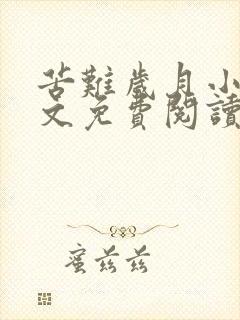 苦難歲月小
文免費閱讀
蜜茲茲